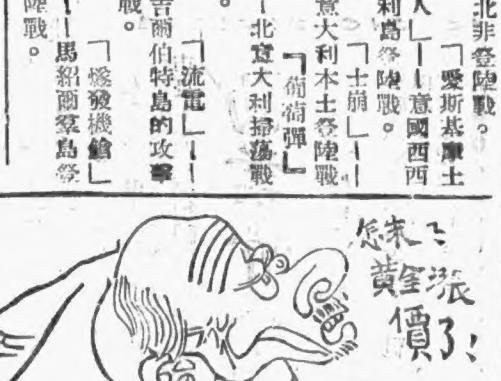 北非登陸戰。
「愛斯基摩土
人」——意國西西
利島登陸戰。
「土崩」——
意大利本土登陸戰
「葡萄彈」
—北意大利掃蕩戰
。
「流電」——
吉爾伯特島的攻擊
戰。
「燧發機鎗」
—馬紹爾羣島登
陸戰。
怎末？
黃金漲
價了！